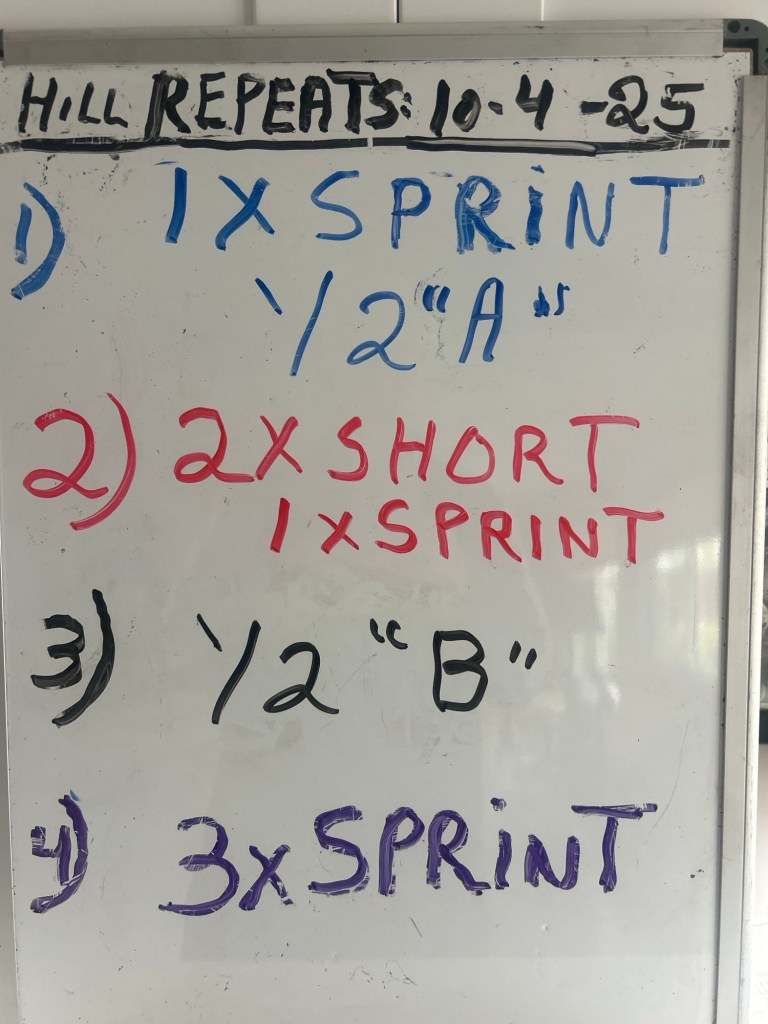 HiLL REPEATS: 10-4-25
1) 1X SPRiNT
1/2 "A"
2) 2X SHORT
1XSPRINT
3) 1/2 "B"
4) 3xSPRiNT